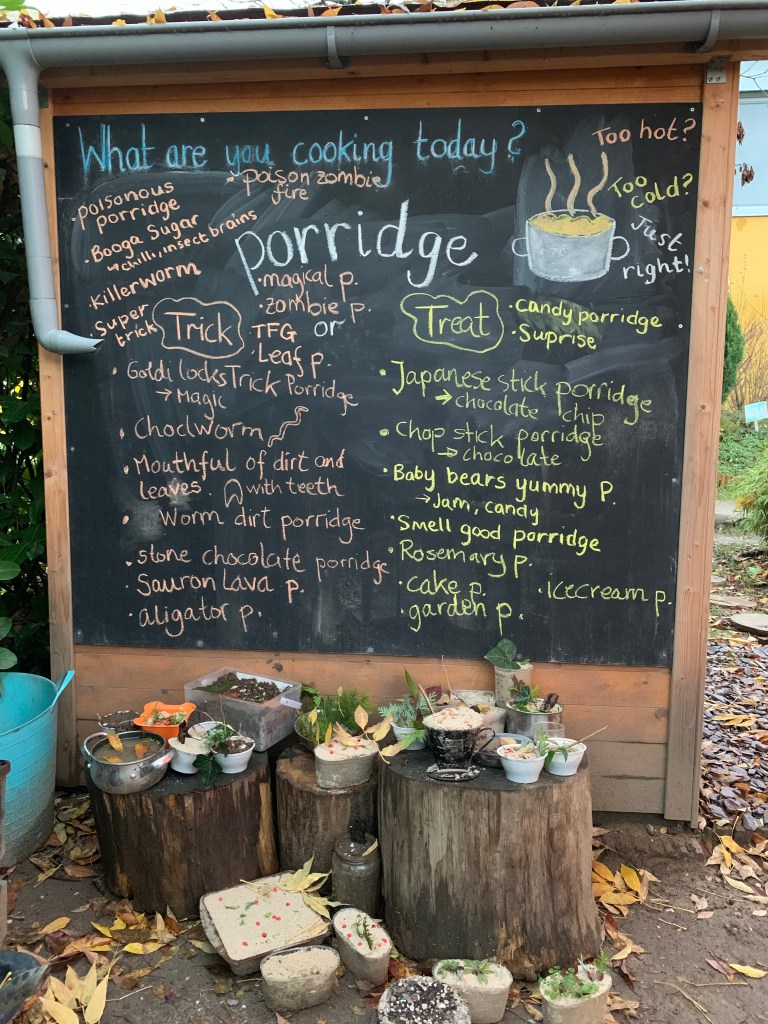 What are you cooking today?
Too hot?
Too
cold?
Just
right!
• poisonous
porridge
• Booga Sugar
↳ chilli, insect brains
• Killerworm
• Super
trick
• Poison zombie
fire
porridge
• magical p.
• zombie p.
Trick
TFG
• Leaf p.
or
Treat
• Candy porridge
• Suprise
• Goldi locks Trick Porridge
→ Magic
• Choclworm
• Mouthful of dirt and
leaves. with teeth
• Worm dirt porridge
• stone chocolate porridge
• Sauron Lava p.
• aligator p.
• Japanese stick porridge
→ chocolate chip
• Chop stick porridge
→ chocolate
• Baby bears yummy P.
→ Jam, candy
• Smell good porridge
• Rosemary p.
• cake p.
• Icecream p.
• garden p.